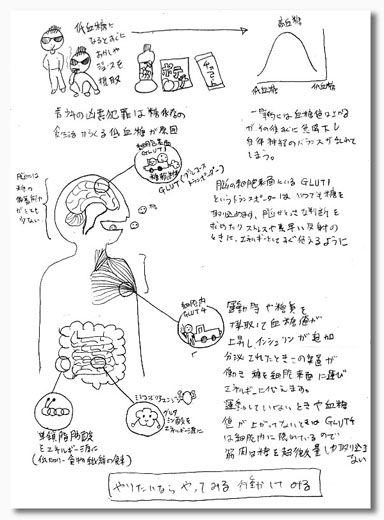 低血糖に
なるとおかし
ジュースを
摂取
ポテチ
チョコ
高血糖
低血糖
低血糖
青少年の凶悪犯罪は糖依存の
食生活がつくる低血糖が原因
一時的には血糖値は上がる
がその後すぐに急降下し
自律神経のバランスが乱れて
しまう。
細胞表面
GLUT1
糖
GLUT(グルコース
トランスポーター)
脳は
糖の
備蓄能力
がとても
少ない
脳の細胞表面にいるGLUT1
というトランスポーターは いつでも糖を
取り込めます、脳がとっさな判断を
もとめたり ストレスや素早い反射の
ときに、エネルギーとしてすぐ使えるように
細胞内
GLUT4
運動等や糖質を
摂取して血糖値が
上昇しインシュリンが追加
分泌されたときこの装置が
働き 糖を細胞表面に運び
エネルギーに変えます。
運動していないときや血糖
値が上がってないときは GLUT4
は細胞内に隠れているので
筋肉は糖を超微量しか取り込め
ない
ミトコンドリアエンジン
グルタ
ミン酸を
エネルギー源に
単鎖脂肪酸
をエネルギー源に
やりたいなら やってみる 行動してみる